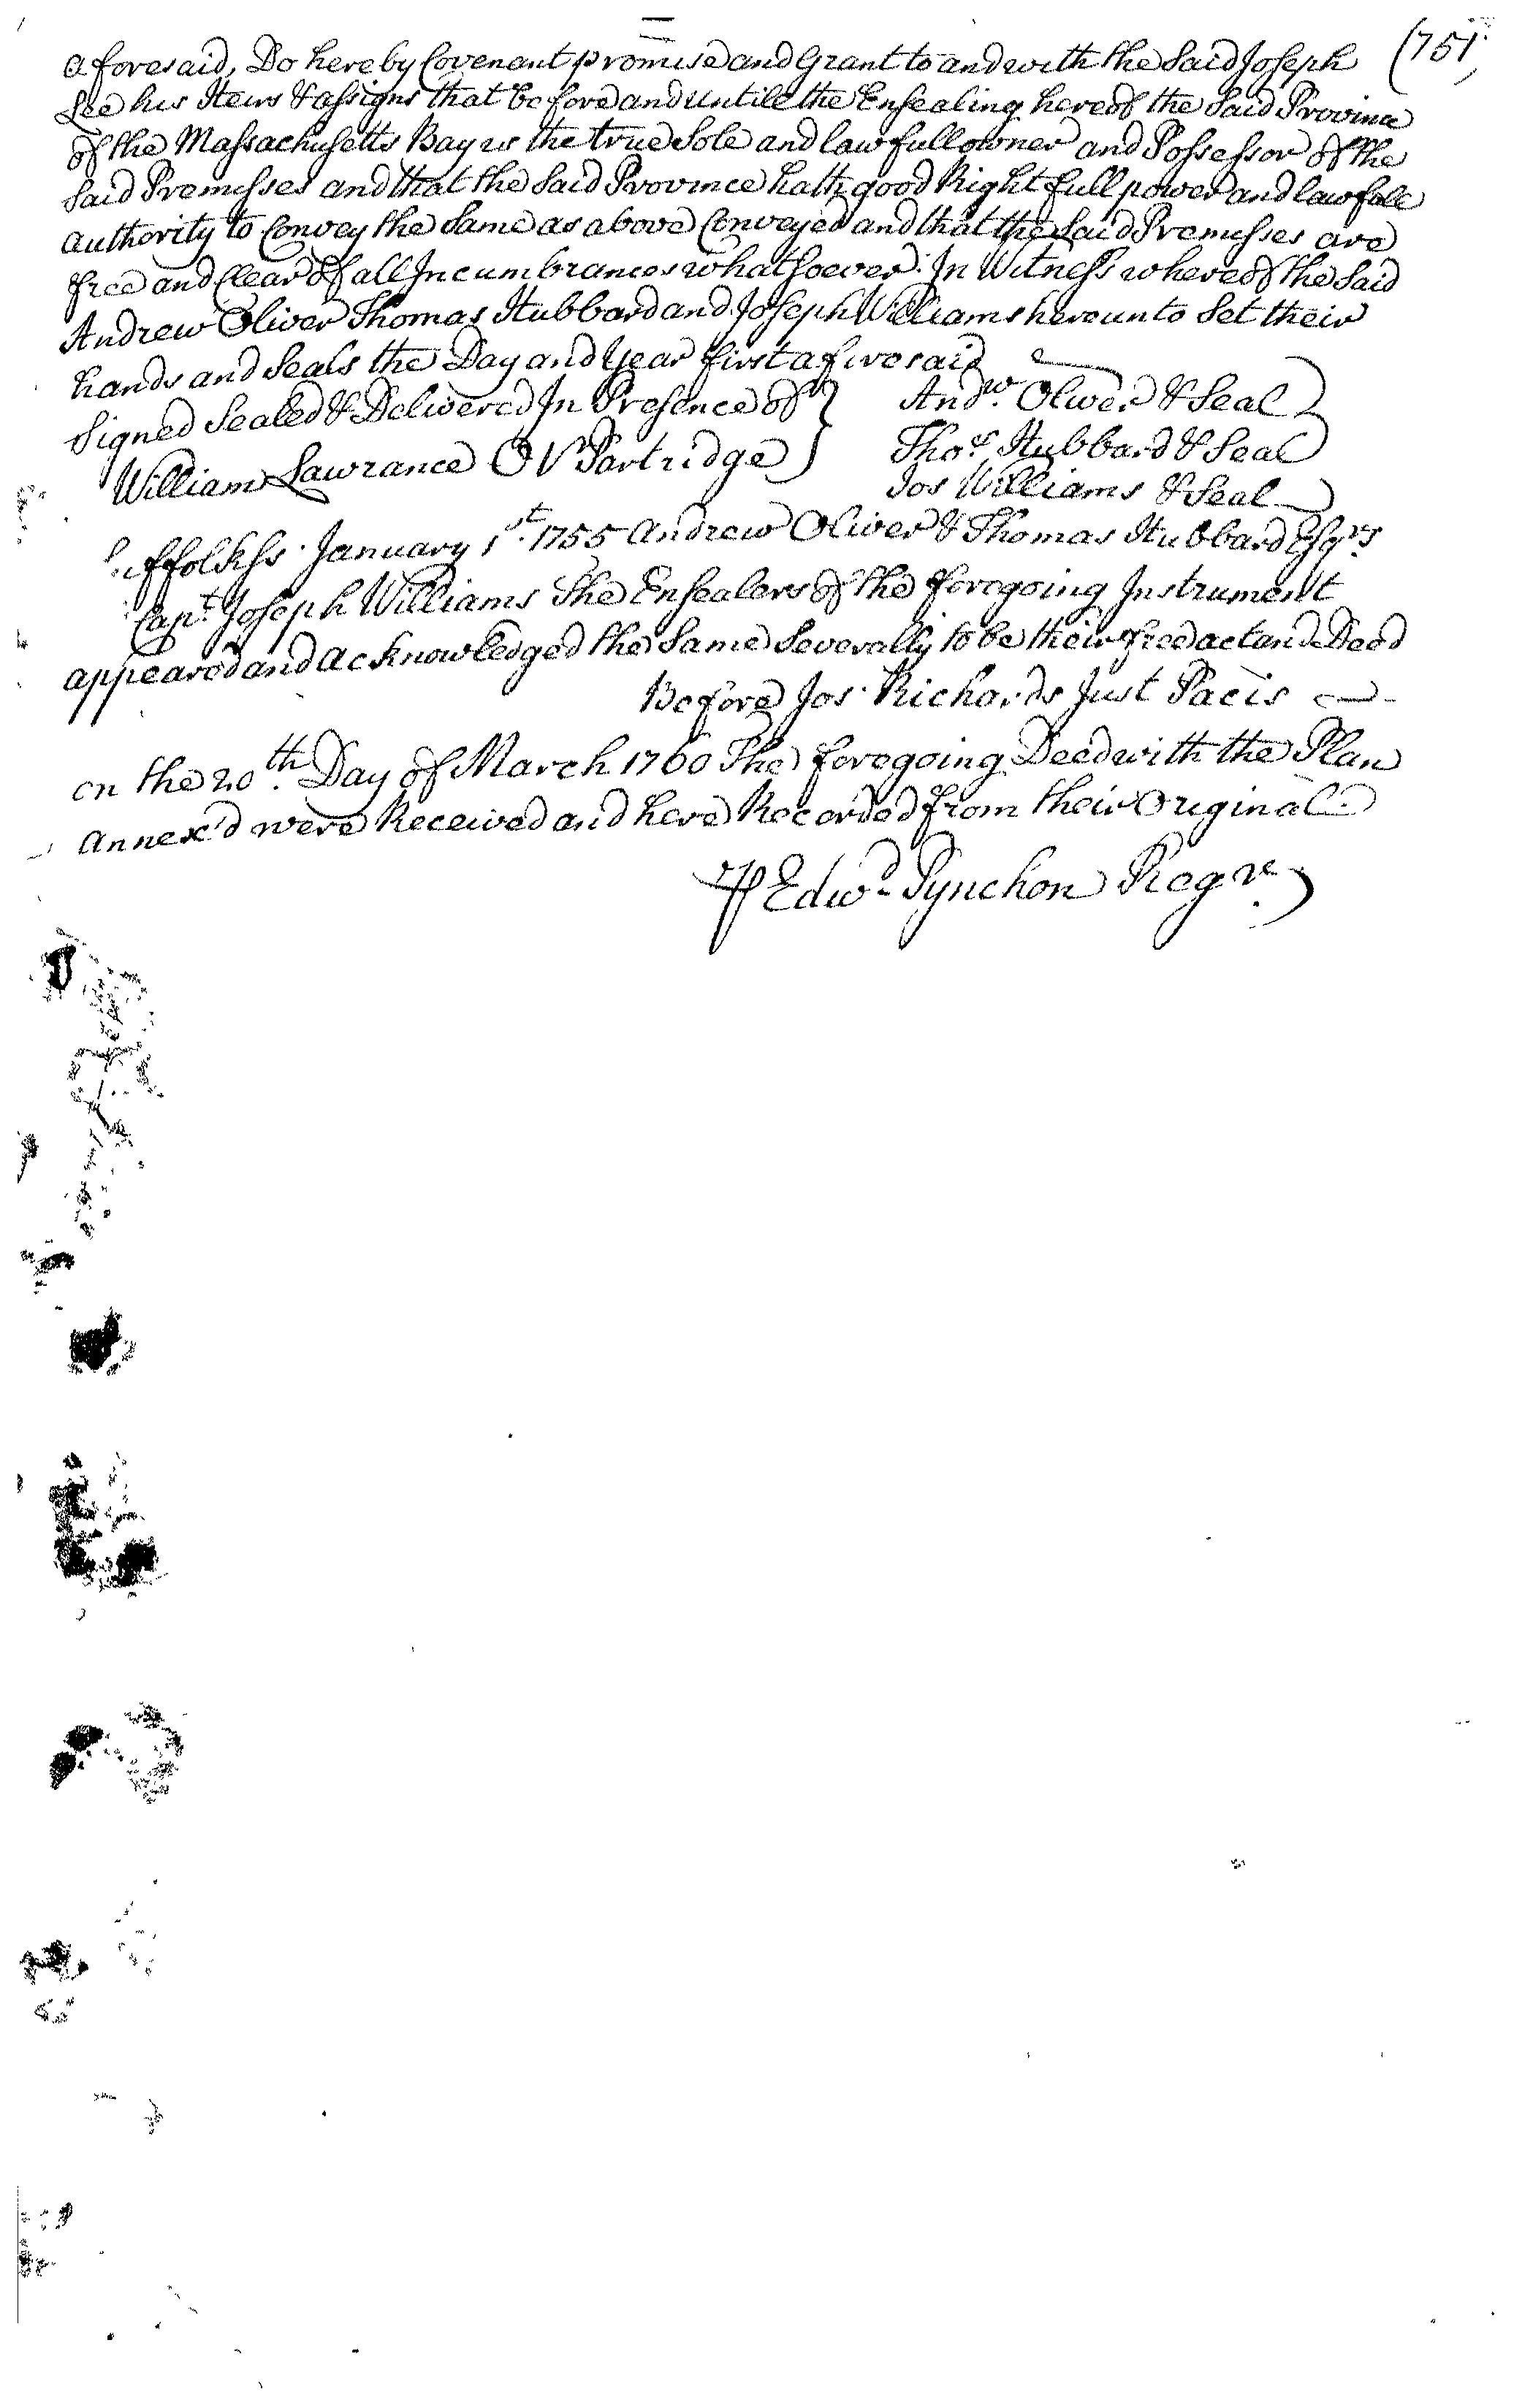 (751
aforesaid, Do hereby Covenant promise and Grant to and with the Said Joseph
Lee his Heirs & assigns that before and untill the Ensealing hereof the Said Province
of the Massachusetts Bay is the true Sole and lawfull owner and Possessor of the
Said Premisses and that the Said Province hath good Right full power and lawfull
authority to Convey the Same as above Conveyed and that the Said Premisses are
free and Clear of all Incumbrances whatsoever. In Witness whereof the Said
Andrew Oliver Thomas Hubbard and Joseph Williams hereunto Set their
hands and Seals the Day and Year first aforesaid
Signed Sealed & Delivered In Presence of } Andw. Oliver & Seal
William Lawrance Ol Partridge } Thos. Hubbard & Seal
Jos Williams & Seal
Suffolk ss. January 1st. 1755 Andrew Oliver & Thomas Hubbard Esqrs
Capt. Joseph Williams The Ensealers of the foregoing Instrument
appeared and acknowledged the Same Severally to be their free act and Deed
Before Jos. Richards Just Pacis
on the 20th. Day of March 1760 The foregoing Deed with the Plan
Annex'd were Received and here Recorded from their Original
℔ Edwd Pynchon Regr.